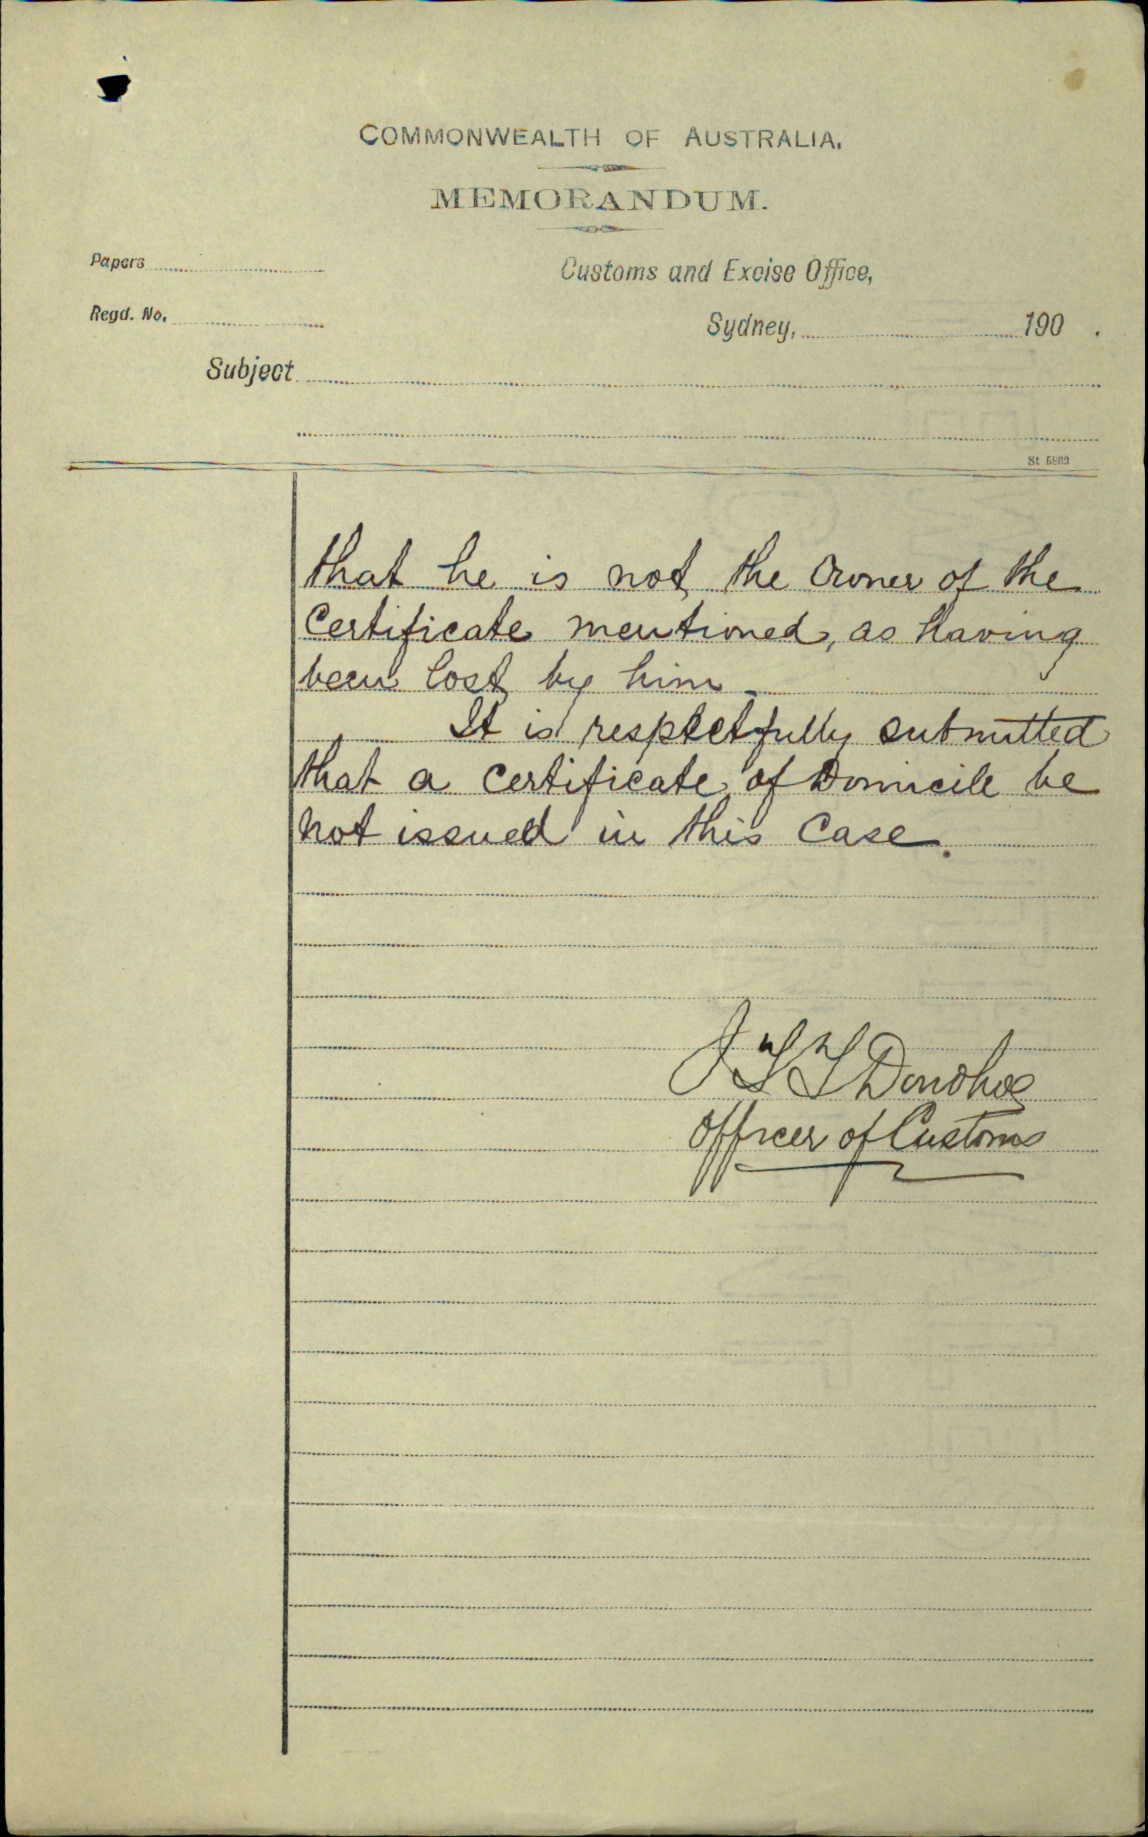 COMMONWEALTH OF AUSTRALIA.
MEMORANDUM.
Papers
Customs and Excise Office,
Regd. No.
Sydney, 190 .
Subject
that he is not the Owner of the
Certificate mentioned, as having
been lost by him.
It is respectfully submitted
that a Certificate of Domicile be
not issued in this Case.
J T T Donohoe
Officer of Customs